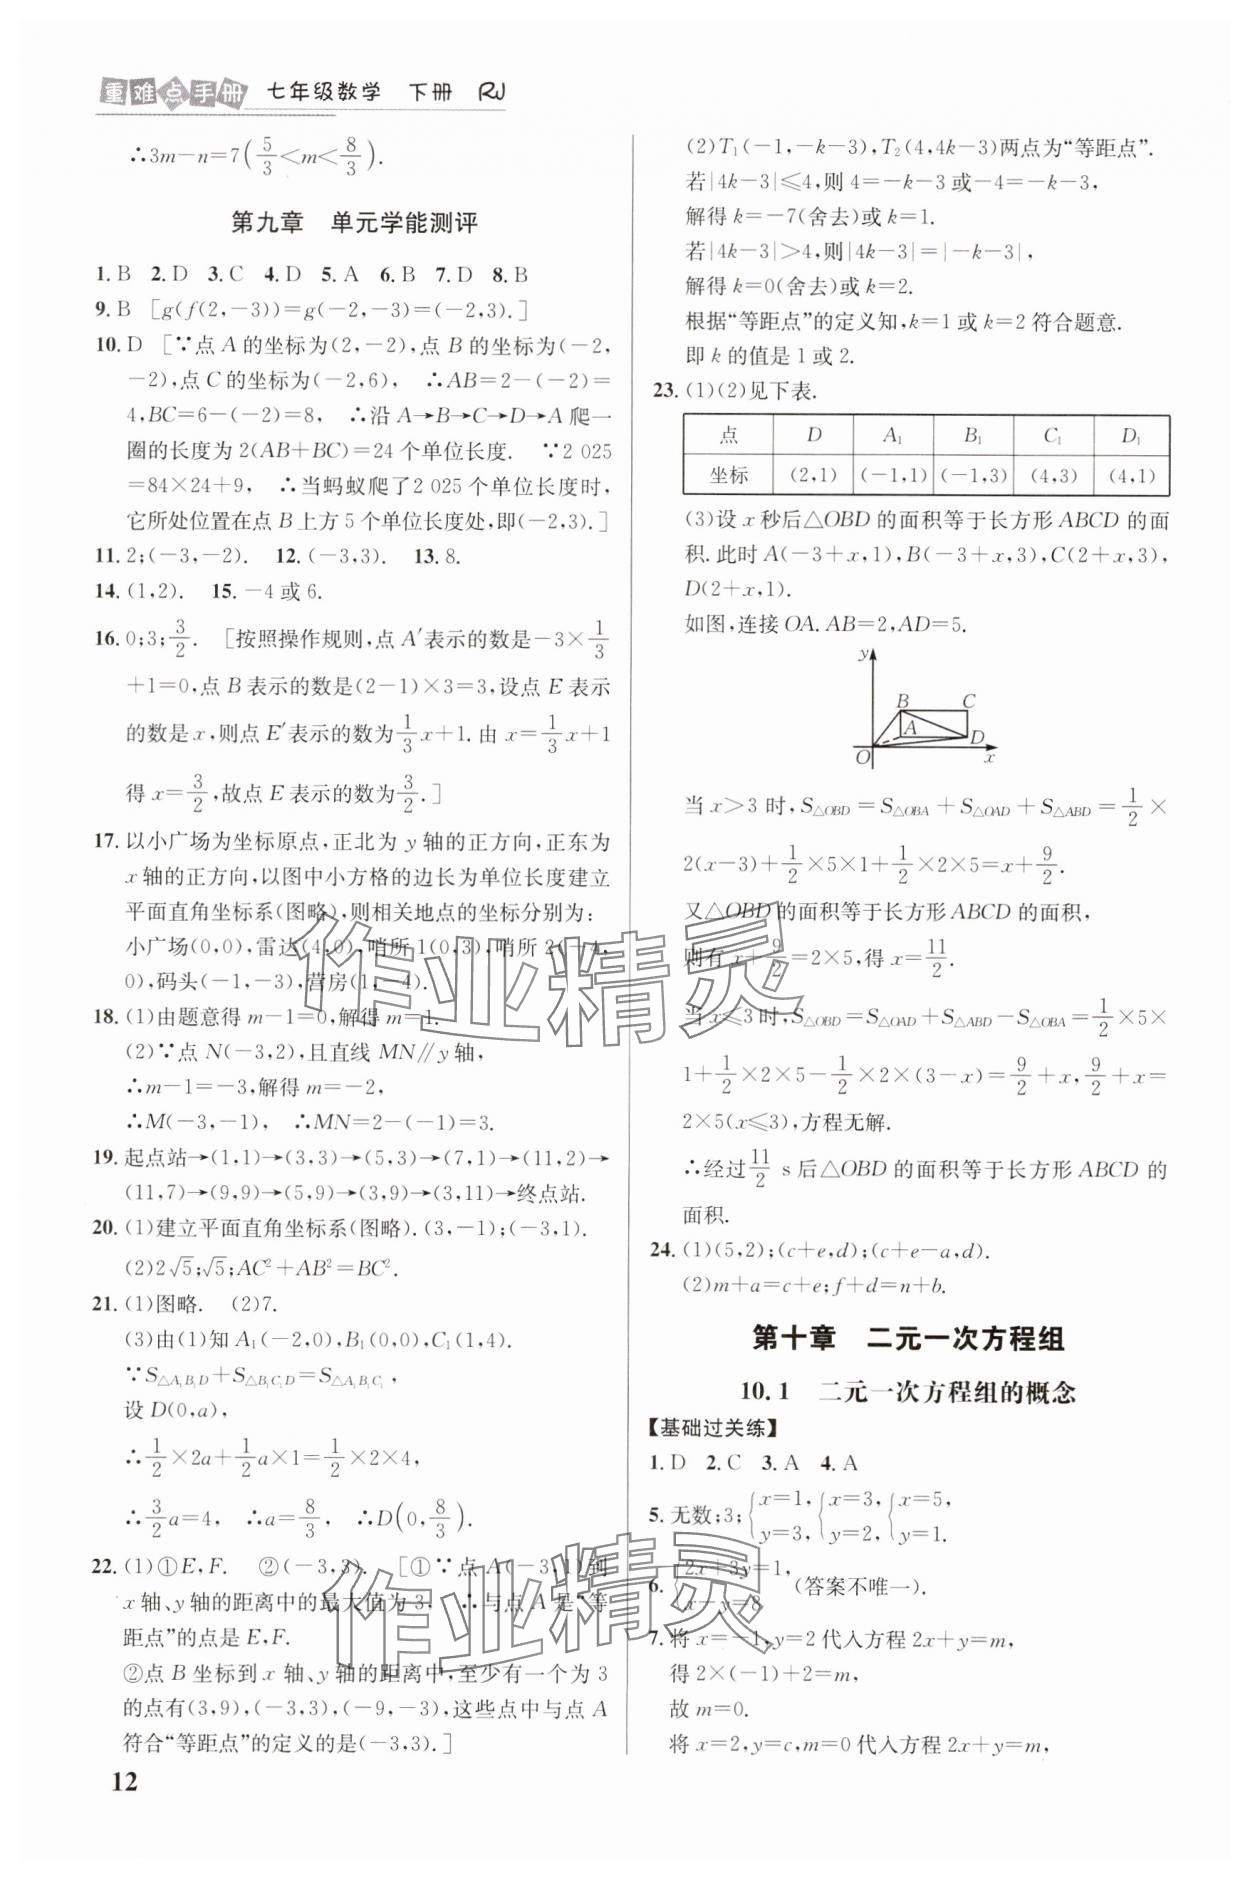 重难点手册 七年级数学 下册 RJ
∴3m－n=7(5/3<m<8/3).
第九章 单元学能测评
1.B 2.D 3.C 4.D 5.A 6.B 7.D 8.B
9.B [g(f(2,－3))=g(－2,－3)=(－2,3).]
10.D [∵点 A 的坐标为(2,－2),点 B 的坐标为(－2,
－2),点 C 的坐标为(－2,6), ∴AB=2－(－2)=
4,BC=6－(－2)=8, ∴沿 A→B→C→D→A 爬一
圈的长度为 2(AB+BC)=24 个单位长度. ∵2 025
=84×24+9, ∴当蚂蚁爬了 2 025 个单位长度时,
它所处位置在点 B 上方 5 个单位长度处,即(－2,3).]
11.2;(－3,－2). 12.(－3,3). 13.8.
14.(1,2). 15.－4 或 6.
16.0;3;3/2. [按照操作规则,点 A′表示的数是－3×1/3
+1=0,点 B 表示的数是(2－1)×3=3,设点 E 表示
的数是 x,则点 E′表示的数为 1/3 x+1.由 x=1/3 x+1
得 x=3/2,故点 E 表示的数为 3/2.]
17.以小广场为坐标原点,正北为 y 轴的正方向,正东为
x 轴的正方向,以图中小方格的边长为单位长度建立
平面直角坐标系(图略),则相关地点的坐标分别为:
小广场(0,0),雷达(4,0),哨所 1(0,3),哨所 2(－4,
0),码头(－1,－3),营房(1,－4).
18.(1)由题意得 m－1=0,解得 m=1.
(2)∵点 N(－3,2),且直线 MN∥y 轴,
∴m－1=－3,解得 m=－2,
∴M(－3,－1), ∴MN=2－(－1)=3.
19.起点站→(1,1)→(3,3)→(5,3)→(7,1)→(11,2)→
(11,7)→(9,9)→(5,9)→(3,9)→(3,11)→终点站.
20.(1)建立平面直角坐标系(图略).(3,－1);(－3,1).
(2)2√5;√5;AC²+AB²=BC².
21.(1)图略. (2)7.
(3)由(1)知 A₁(－2,0),B₁(0,0),C₁(1,4).
∵S△A₁B₁D+S△B₁C₁D=S△A₁B₁C₁,
设 D(0,a),
∴1/2×2a+1/2a×1=1/2×2×4,
∴3/2a=4, ∴a=8/3, ∴D(0,8/3).
22.(1)①E,F. ②(－3,3). [①∵点 A(－3,1)到
x 轴、y 轴的距离中的最大值为 3, ∴与点 A 是“等
距点”的点是 E,F.
②点 B 坐标到 x 轴、y 轴的距离中,至少有一个为 3
的点有(3,9),(－3,3),(－9,－3),这些点中与点 A
符合“等距点”的定义的是(－3,3).]
12
(2)T₁(－1,－k－3),T₂(4,4k－3)两点为“等距点”.
若|4k－3|≤4,则 4=－k－3 或－4=－k－3,
解得 k=－7(舍去)或 k=1.
若|4k－3|>4,则|4k－3|=|－k－3|,
解得 k=0(舍去)或 k=2.
根据“等距点”的定义知,k=1 或 k=2 符合题意.
即 k 的值是 1 或 2.
23.(1)(2)见下表.
点 D A₁ B₁ C₁ D₁
坐标 (2,1) (－1,1) (－1,3) (4,3) (4,1)
(3)设 x 秒后△OBD 的面积等于长方形 ABCD 的面
积.此时 A(－3+x,1),B(－3+x,3),C(2+x,3),
D(2+x,1).
如图,连接 OA.AB=2,AD=5.
y
B C
A D
O x
当 x>3 时,S△OBD=S△OBA+S△OAD+S△ABD=1/2×
2(x－3)+1/2×5×1+1/2×2×5=x+9/2.
又△OBD 的面积等于长方形 ABCD 的面积,
则有 x+9/2=2×5,得 x=11/2.
当 x≤3 时,S△OBD=S△OAD+S△ABD－S△OBA=1/2×5×
1+1/2×2×5－1/2×2×(3－x)=9/2+x,9/2+x=
2×5(x≤3),方程无解.
∴经过 11/2 s 后△OBD 的面积等于长方形 ABCD 的
面积.
24.(1)(5,2);(c+e,d);(c+e－a,d).
(2)m+a=c+e;f+d=n+b.
第十章 二元一次方程组
10.1 二元一次方程组的概念
【基础过关练】
1.D 2.C 3.A 4.A
5.无数;3;{x=1,y=3,{x=3,y=2,{x=5,y=1.
6.{2x+3y=1,x－y=8 (答案不唯一).
7.将 x=－1,y=2 代入方程 2x+y=m,
得 2×(－1)+2=m,
故 m=0.
将 x=2,y=c,m=0 代入方程 2x+y=m,
作业精灵
作业精灵